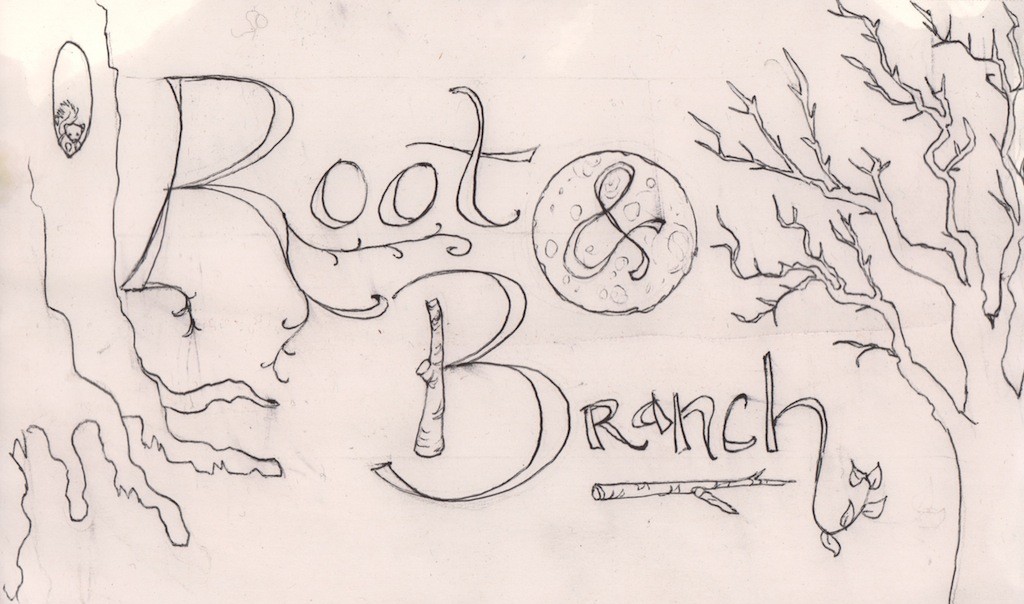 Root &
Branch